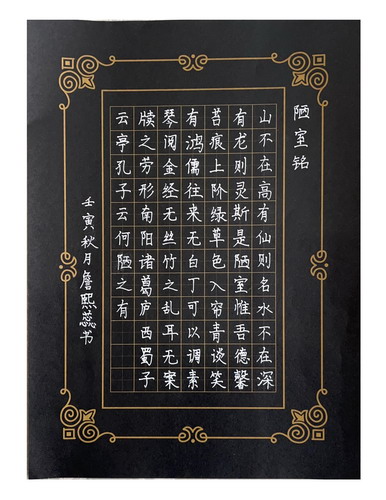 陋室铭
山不在高有仙则名水不在深
有龙则灵斯是陋室惟吾德馨
苔痕上阶绿草色入帘青谈笑
有鸿儒往来无白丁可以调素
琴阅金经无丝竹之乱耳无案
牍之劳形南阳诸葛庐西蜀子
云亭孔子云何陋之有
壬寅秋月詹熙蕊书